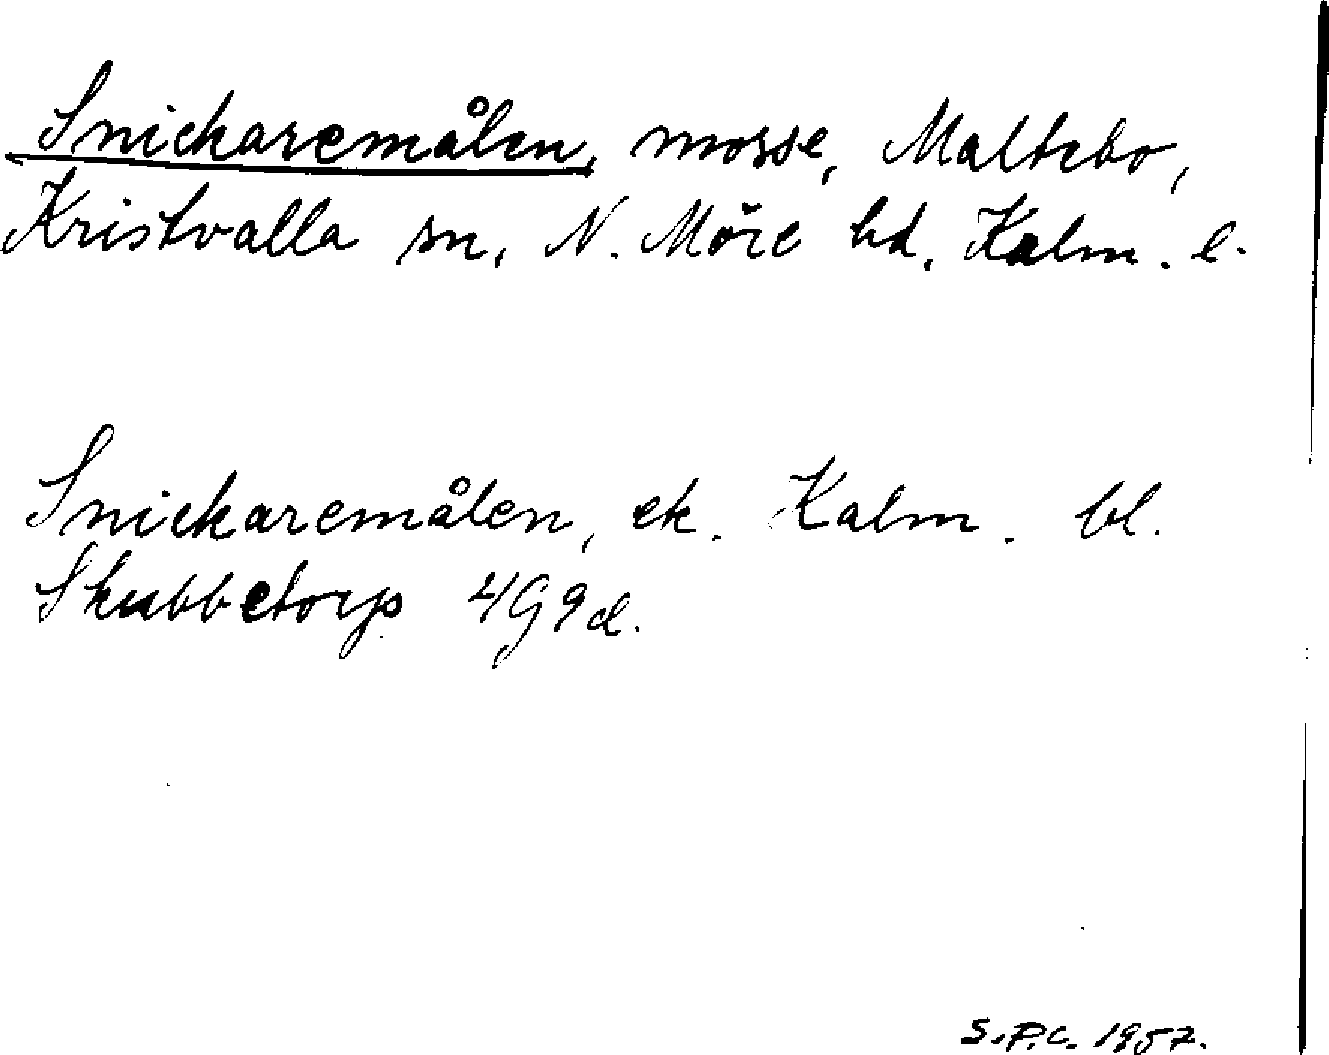 Snickaremålen, mosse, Maltebo,
Kristvalla sn, N. Möre hd, Kalm. l.
Snickaremålen, ek. Kalm. bl.
Skubbetorp 4G9d.
S.P.C. 1957.